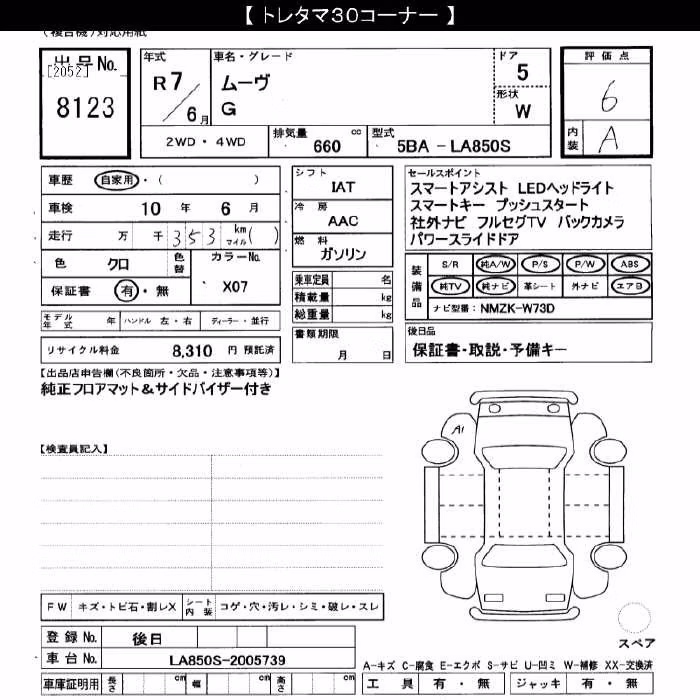 【 トレタマ30コーナー 】
(複合機)対応用紙
出品No.
[2052]
8123
年式
R 7
6月
車名・グレード
ムーヴ
G
ドア
5
形状
W
評価点
6
内装
A
2WD・4WD
排気量 660 cc
型式 5BA - LA850S
車歴 自家用・( )
車検 10年 6月
走行 万 千 353 km マイル( )
色 クロ
色替
カラーNo.
X07
保証書 有・無
シフト
IAT
冷房
AAC
燃料
ガソリン
乗車定員 名
積載量 kg
総重量 kg
セールスポイント
スマートアシスト LEDヘッドライト
スマートキー プッシュスタート
社外ナビ フルセグTV バックカメラ
パワースライドドア
装備品
S/R 純A/W P/S P/W ABS
純TV 純ナビ 革シート 外ナビ エアB
ナビ型番: NMZK-W73D
モデル年式 年 ハンドル 左・右 ディーラー・並行
書類期限
月 日
後日品
保証書・取説・予備キー
リサイクル料金 8,310 円 預託済
【出品店申告欄(不良箇所・欠品・注意事項等)】
純正フロアマット&サイドバイザー付き
【検査員記入】
A1
FW キズ・トビ石・割レX
シート内装 コゲ・穴・汚レ・シミ・破レ・スレ
スペア
登録No. 後日
車台No. LA850S-2005739
車庫証明用 長さ cm 幅 cm 高さ cm
A-キズ C-腐食 E-エクボ S-サビ U-凹ミ W-補修 XX-交換済
工具 有・無 ジャッキ 有・無